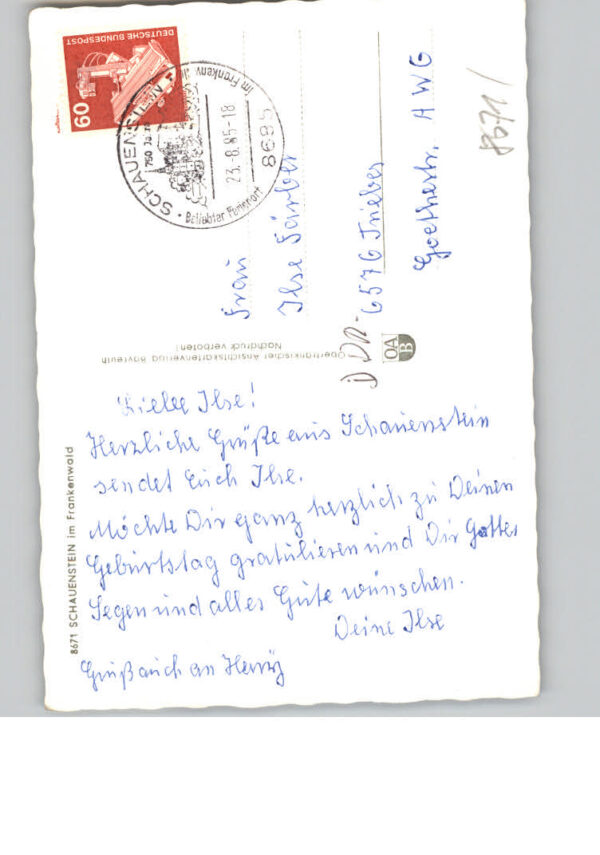 Liebe Ilse!
Herzliche Grüße aus Schauenstein
sendet Euch Ilse.
Möchte Dir ganz herzlich zu Deinen
Geburtstag gratulieren und Dir Gottes
Segen und alles Gute wünschen.
Deine Ilse
Gruß auch an
8671 SCHAUENSTEIN im Frankenwald
Oberfränkischer Ansichtskartenverlag Bayreuth
Nachdruck verboten!
OA
B
Frau
Ilse Färber
DDR-
6576 Triebes
Goethestr. AWG
8671/
DEUTSCHE BUNDESPOST
60
SCHAUENSTEIN
im Frankenwald
750 Jahre
23.-8.85-18
8695
Beliebter Ferienort